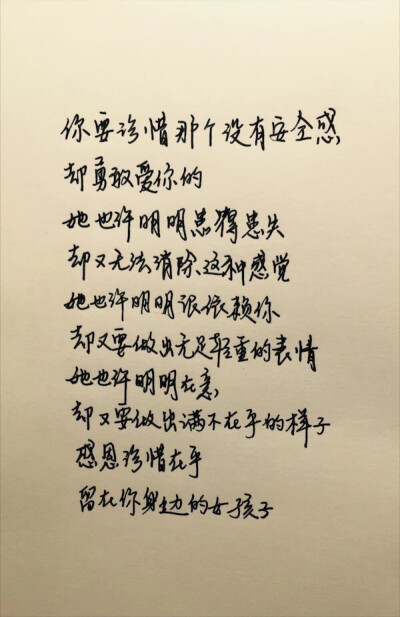 你要珍惜那个没有安全感,
却勇敢爱你的
她也许明明患得患失
却又无法消除这种感觉
她也许明明很依赖你
却又要做出无足轻重的表情
她也许明明在意,
却又要做出满不在乎的样子
感恩珍惜在乎
留在你身边的女孩子